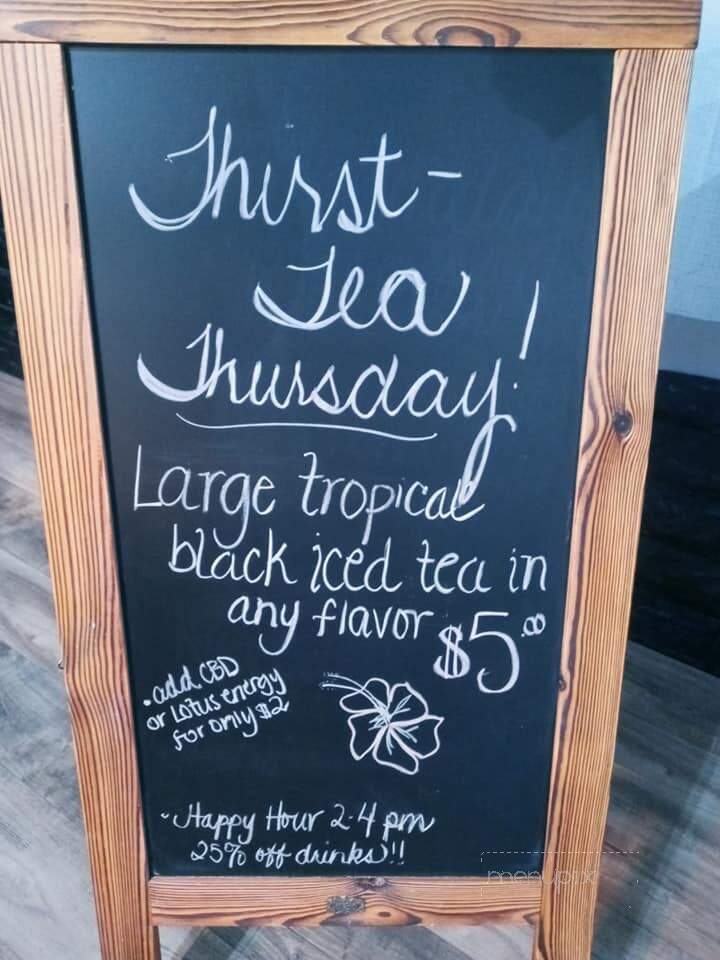 Thirst-
Tea
Thursday!
Large tropical
black iced tea in
any flavor $5.00
• add CBD
or Lotus energy
for only $2
• Happy Hour 2-4 pm
25% off drinks!!
menupix